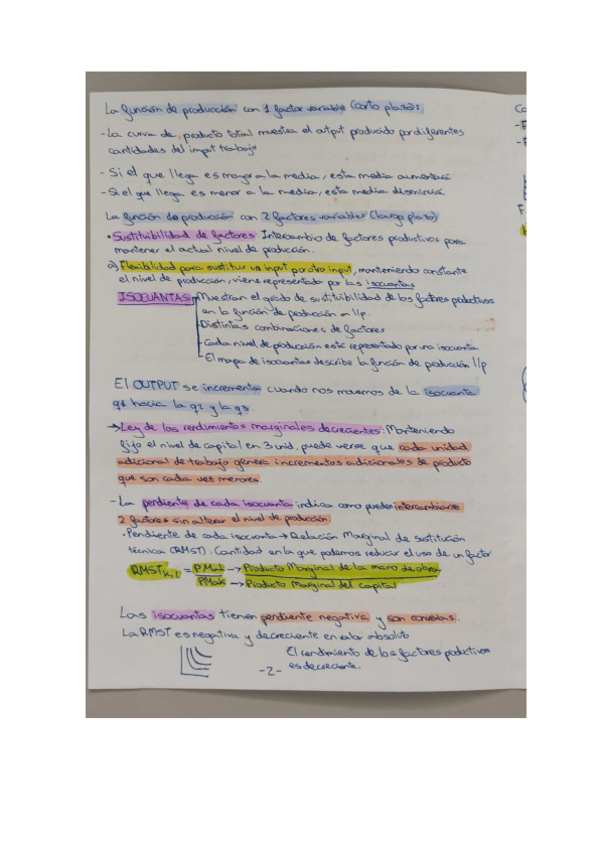 La función de producción con 1 factor variable (corto plazo):
-La curva de producto total muestra el output producido por diferentes
cantidades del input trabajo
- Si el que llega es mayor a la media, esta media aumentará
- Si el que llega es menor a la media, esta media disminuirá
La función de producción con 2 factores variables (largo plazo)
• Sustituibilidad de factores: Intercambio de factores productivos para
mantener el actual nivel de producción.
a) Flexibilidad para sustituir un input por otro input, manteniendo constante
el nivel de producción, viene representado por las isocuantas
ISOCUANTAS Muestran el grado de sustituibilidad de los factores productivos
en la función de producción a l/p.
Distintas combinaciones de factores
Cada nivel de producción está representado por una isocuanta
El mapa de isocuantas describe la función de producción l/p
El OUTPUT se incrementa cuando nos movemos de la isocuanta
q1 hacia la q2 y la q3.
→ Ley de los rendimientos marginales decrecientes: Manteniendo
fijo el nivel de capital en 3 unid, puede verse que cada unidad
adicional de trabajo genera incrementos adicionales de producto
que son cada vez menores.
- La pendiente de cada isocuanta indica como pueden intercambiarse
2 factores sin alterar el nivel de producción.
• Pendiente de cada isocuanta → Relación Marginal de sustitución
técnica (RMST): Cantidad en la que podemos reducir el uso de un factor
RMST K,L = PMaL → Producto Marginal de la mano de obra
PMaK → Producto Marginal del capital
Las isocuantas tienen pendiente negativa y son convexas.
La RMST es negativa y decreciente en valor absoluto
El rendimiento de los factores productivos
es decreciente.
-2-